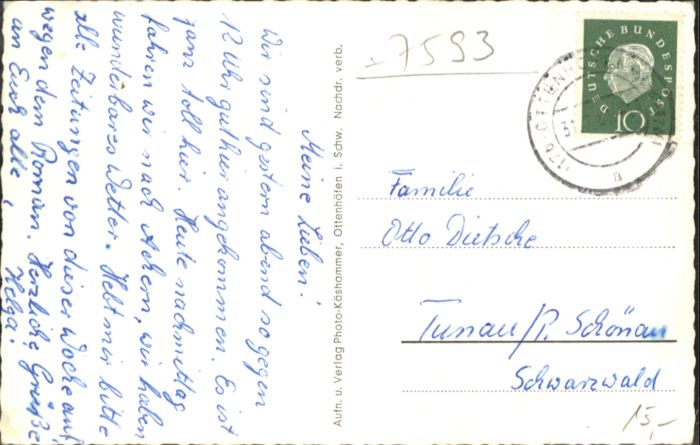 Meine Lieben!
Wir sind gestern abend so gegen
12 Uhr gut hier angekommen. Es ist
ganz toll hier. Heute nachmittag
fahren wir nach Achern, wir haben
wunderbares Wetter. Hebt mir bitte
alle Zeitungen von dieser Woche auf
wegen dem Roman. Herzliche Grüße
an Euch alle,
Helga.
Aufn. u. Verlag Photo-Käshammer, Ottenhöfen i. Schw. Nachdr. verb.
7593
DEUTSCHE BUNDESPOST
10
a
Familie
Otto Dietsche
Tunau/P. Schönau
Schwarzwald
15,-